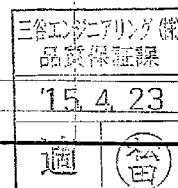 三谷エンジニアリング(株)
品質保証課
'15.4.23
適 松田